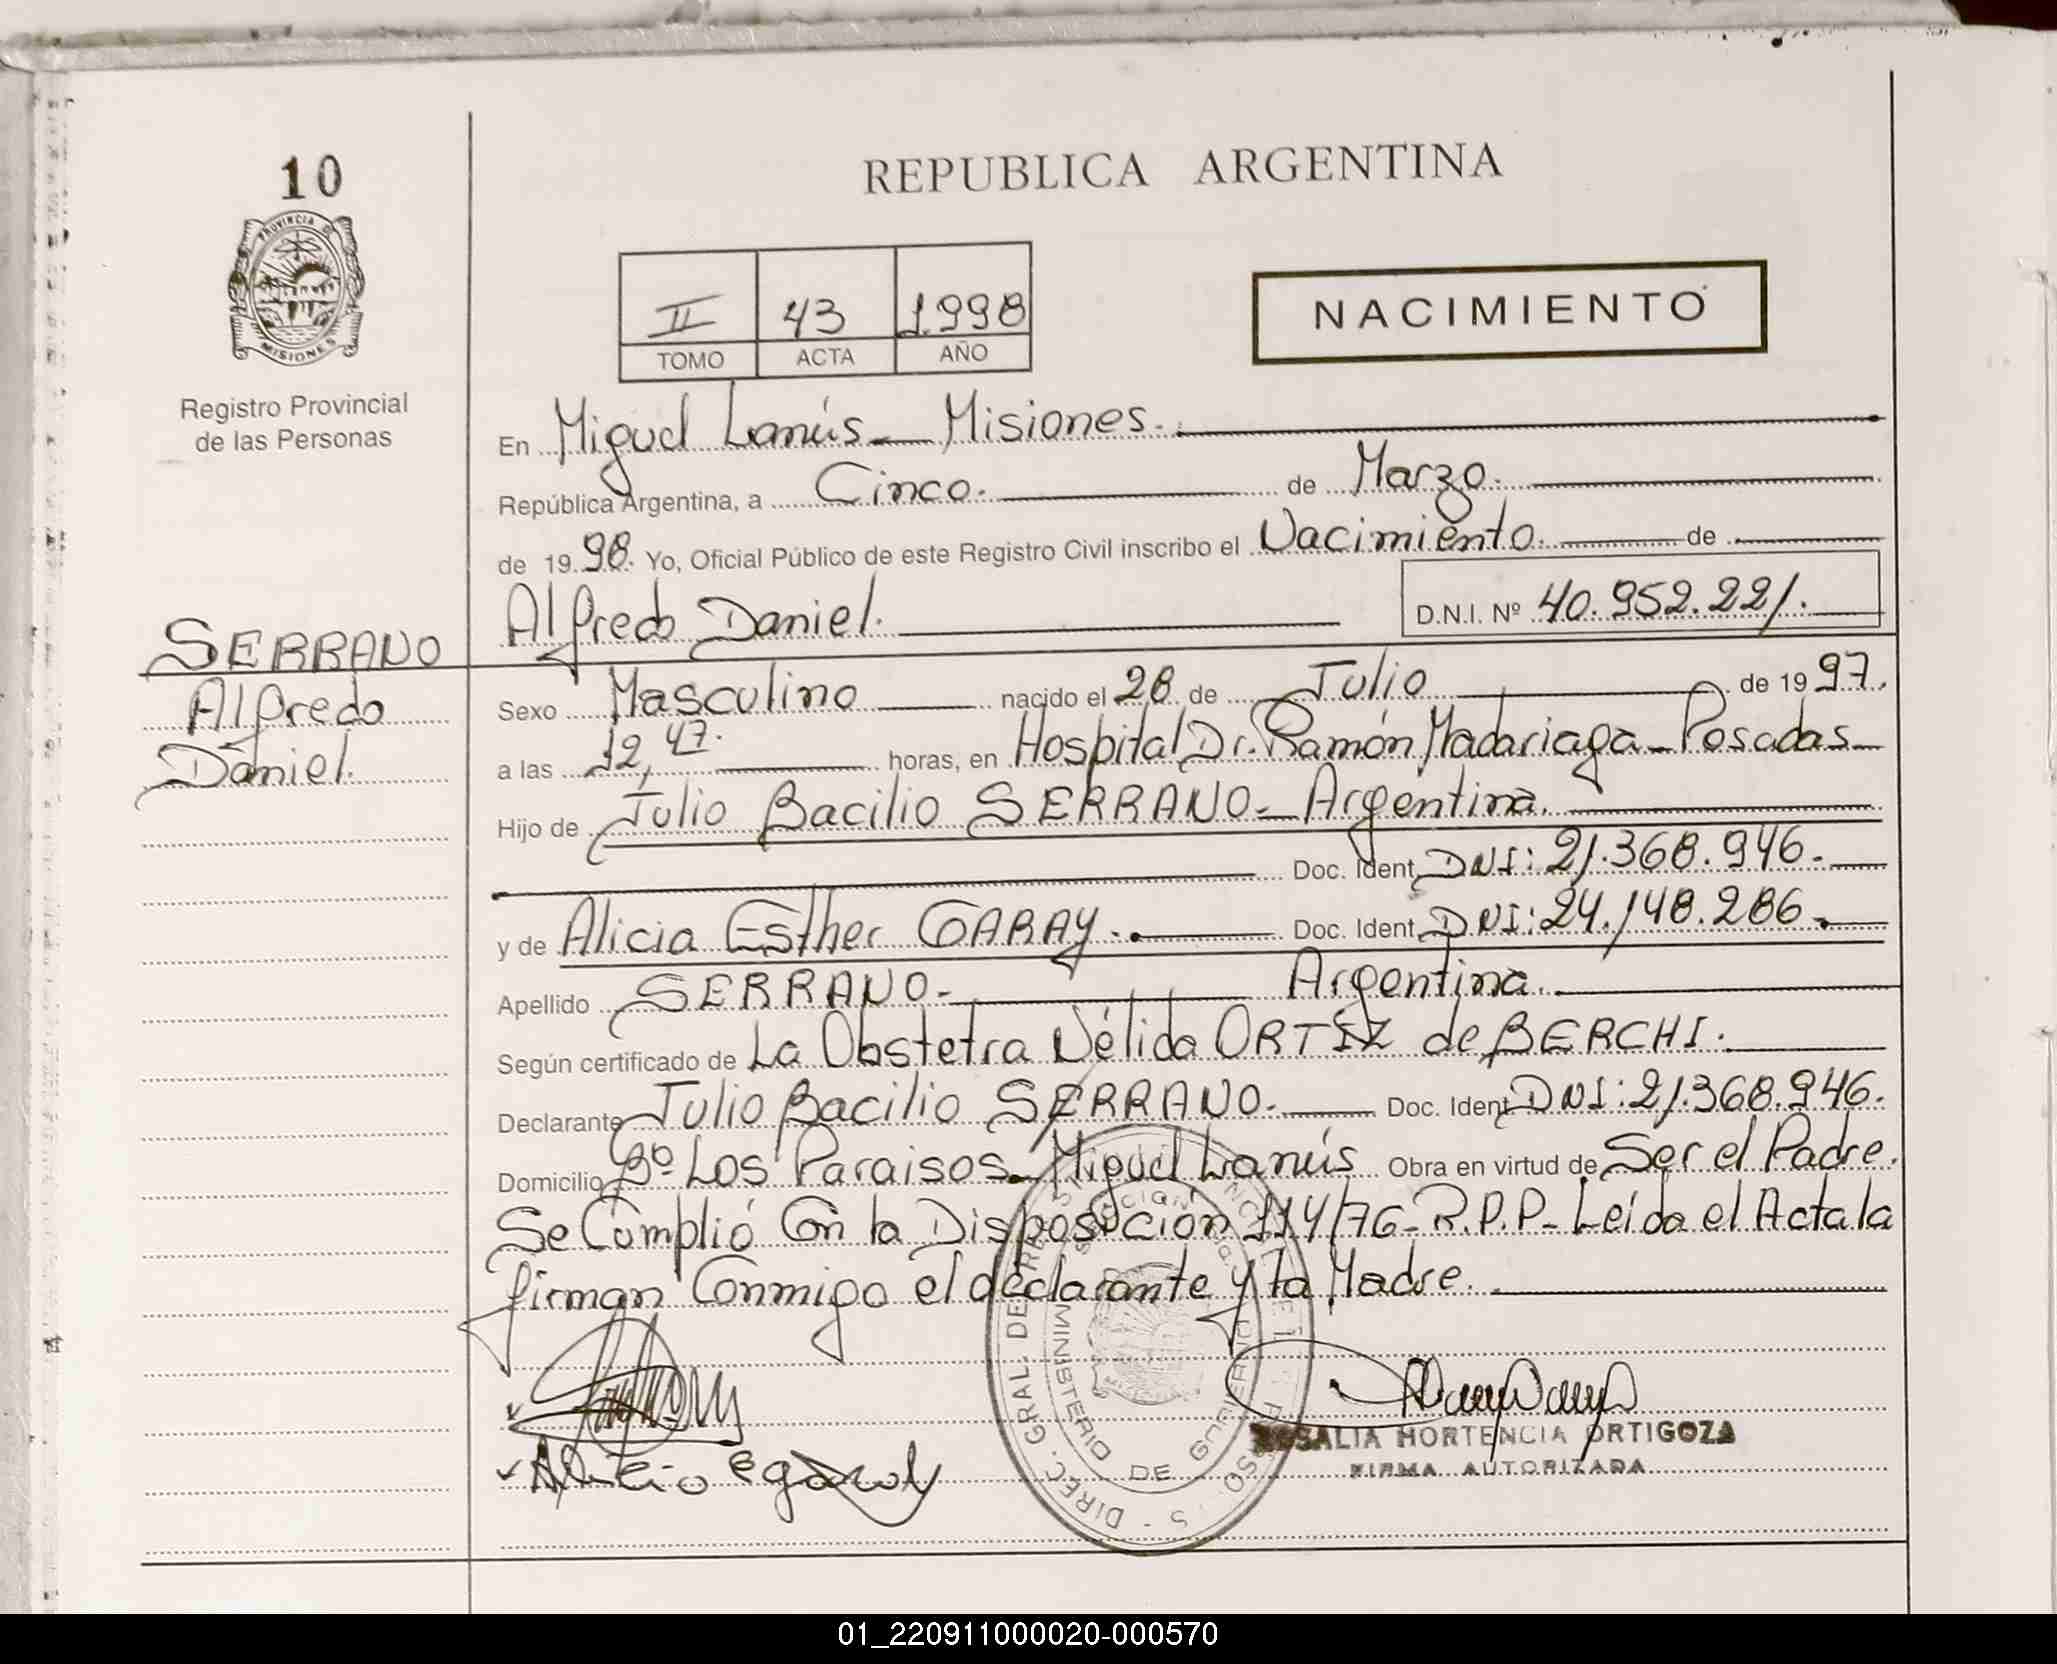 10
PROVINCIA DE
MISIONES
Registro Provincial
de las Personas
REPUBLICA ARGENTINA
II 43 1998
TOMO ACTA AÑO
NACIMIENTO
En Miguel Lanús - Misiones.
República Argentina, a Cinco. de Marzo.
de 1998. Yo, Oficial Público de este Registro Civil inscribo el Nacimiento. de
Alfredo Daniel. D.N.I. Nº 40.952.221.
SERRANO
Alfredo
Daniel.
Sexo Masculino nacido el 28 de Julio de 1997.
a las 12,47. horas, en Hospital Dr. Ramón Madariaga - Posadas
Hijo de Julio Bacilio SERRANO - Argentina.
Doc. Ident. DNI: 21.368.946.
y de Alicia Esther GARAY. Doc. Ident. DNI: 24.148.286.
Apellido SERRANO - Argentina.
Según certificado de La Obstetra Nélida ORTIZ de BERCHI.
Declarante Julio Bacilio SERRANO. Doc. Ident. DNI: 21.368.946.
Domicilio Bº Los Paraisos - Miguel Lanús Obra en virtud de Ser el Padre.
Se Cumplió Con la Disposición 114/76 - R.P.P - Leída el Acta la
firman Conmigo el declarante y la Madre.
DIREC. GRAL. DE
MINISTERIO DE GOBIERNO
ROSALIA HORTENCIA ORTIGOZA
FIRMA AUTORIZADA
01_220911000020-000570